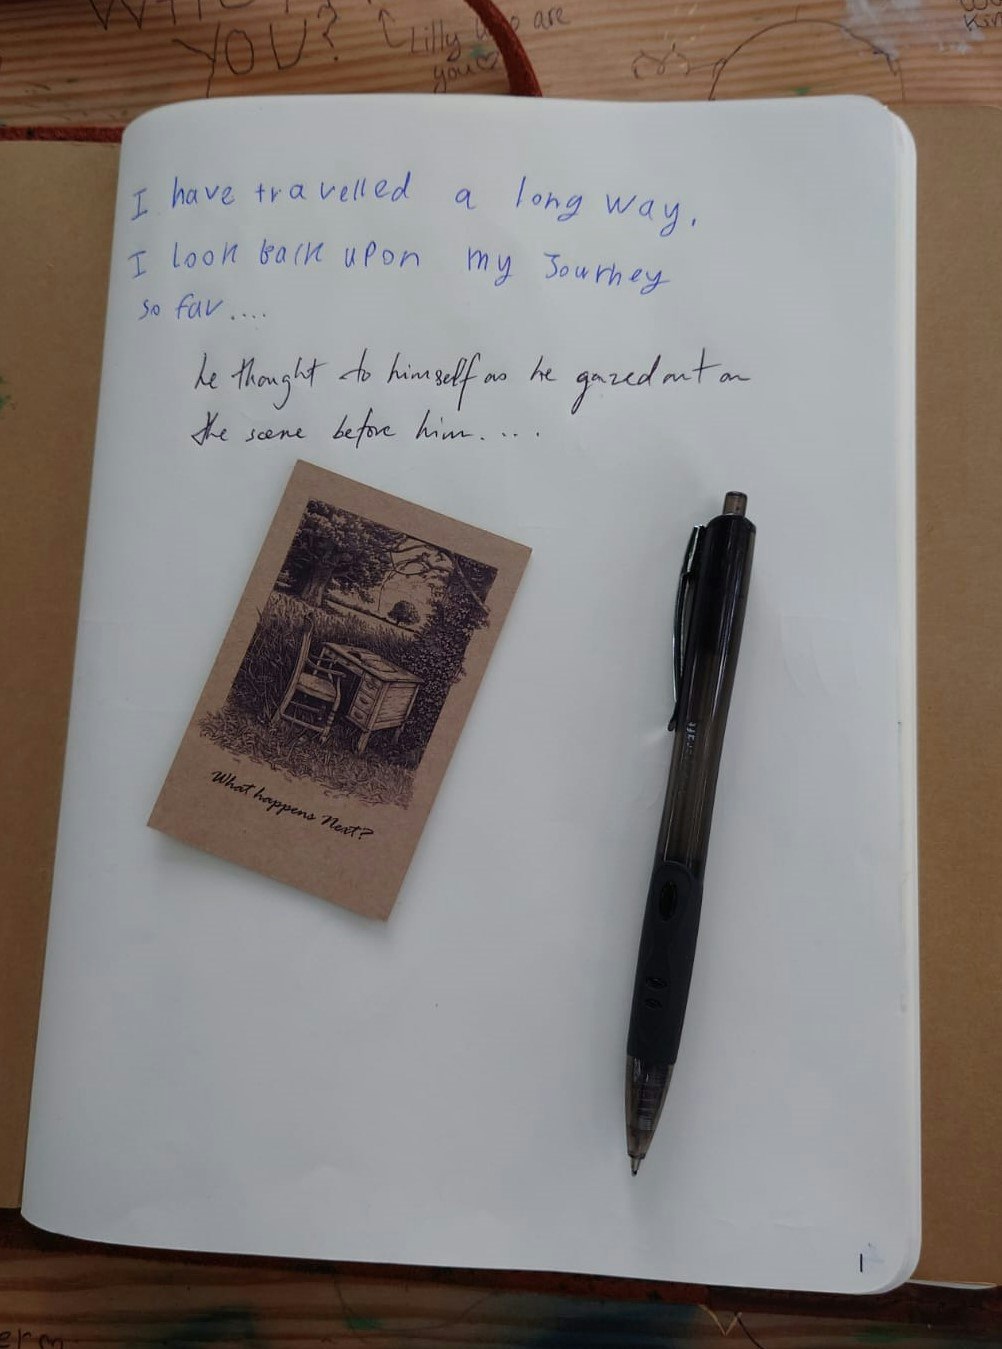 YOU?
Lilly who are
you
I have travelled a long way.
I look back upon my Journey
so far....
he thought to himself as he gazed out on
the scene before him....
What happens Next?
1